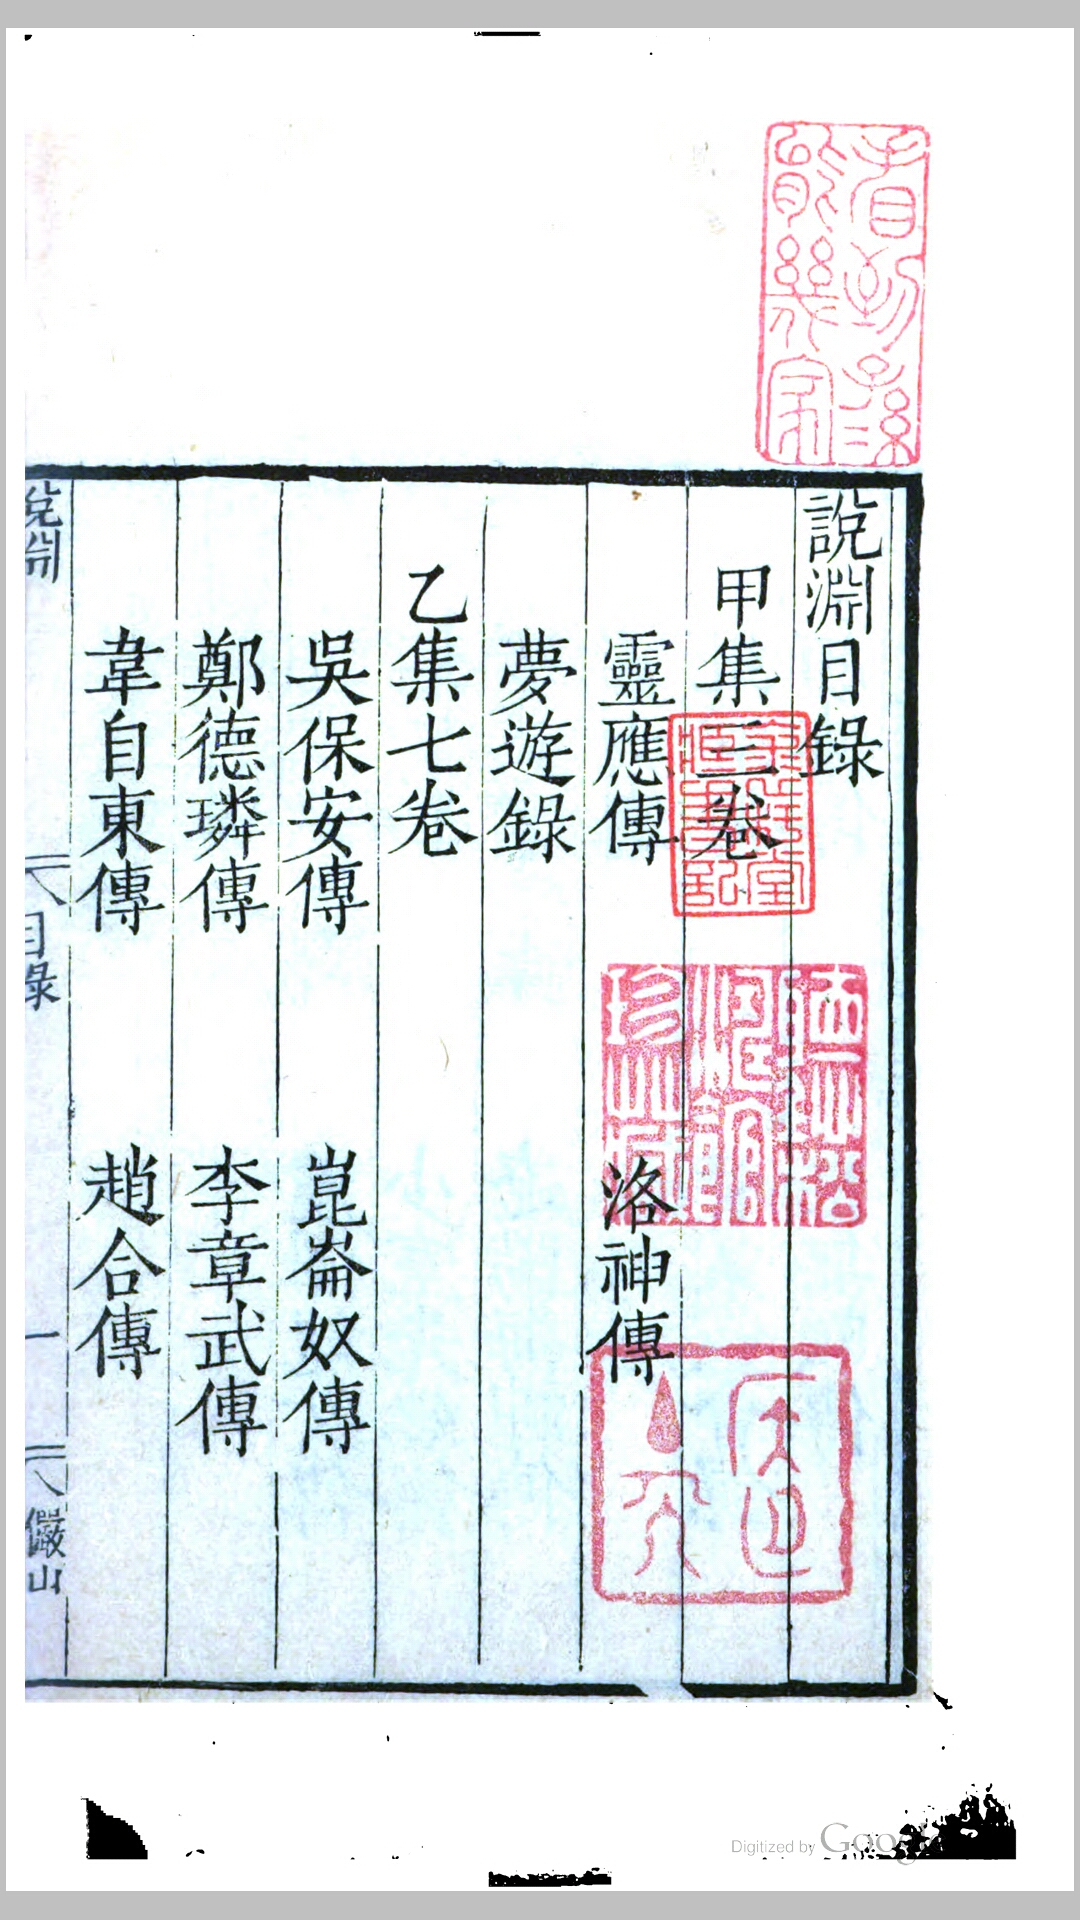 說淵目錄
甲集三卷
靈應傳 洛神傳
夢遊錄
乙集七卷
吳保安傳 崑崙奴傳
鄭德璘傳 李章武傳
韋自東傳 趙合傳
說淵 目錄 一 儼山
Digitized by Google